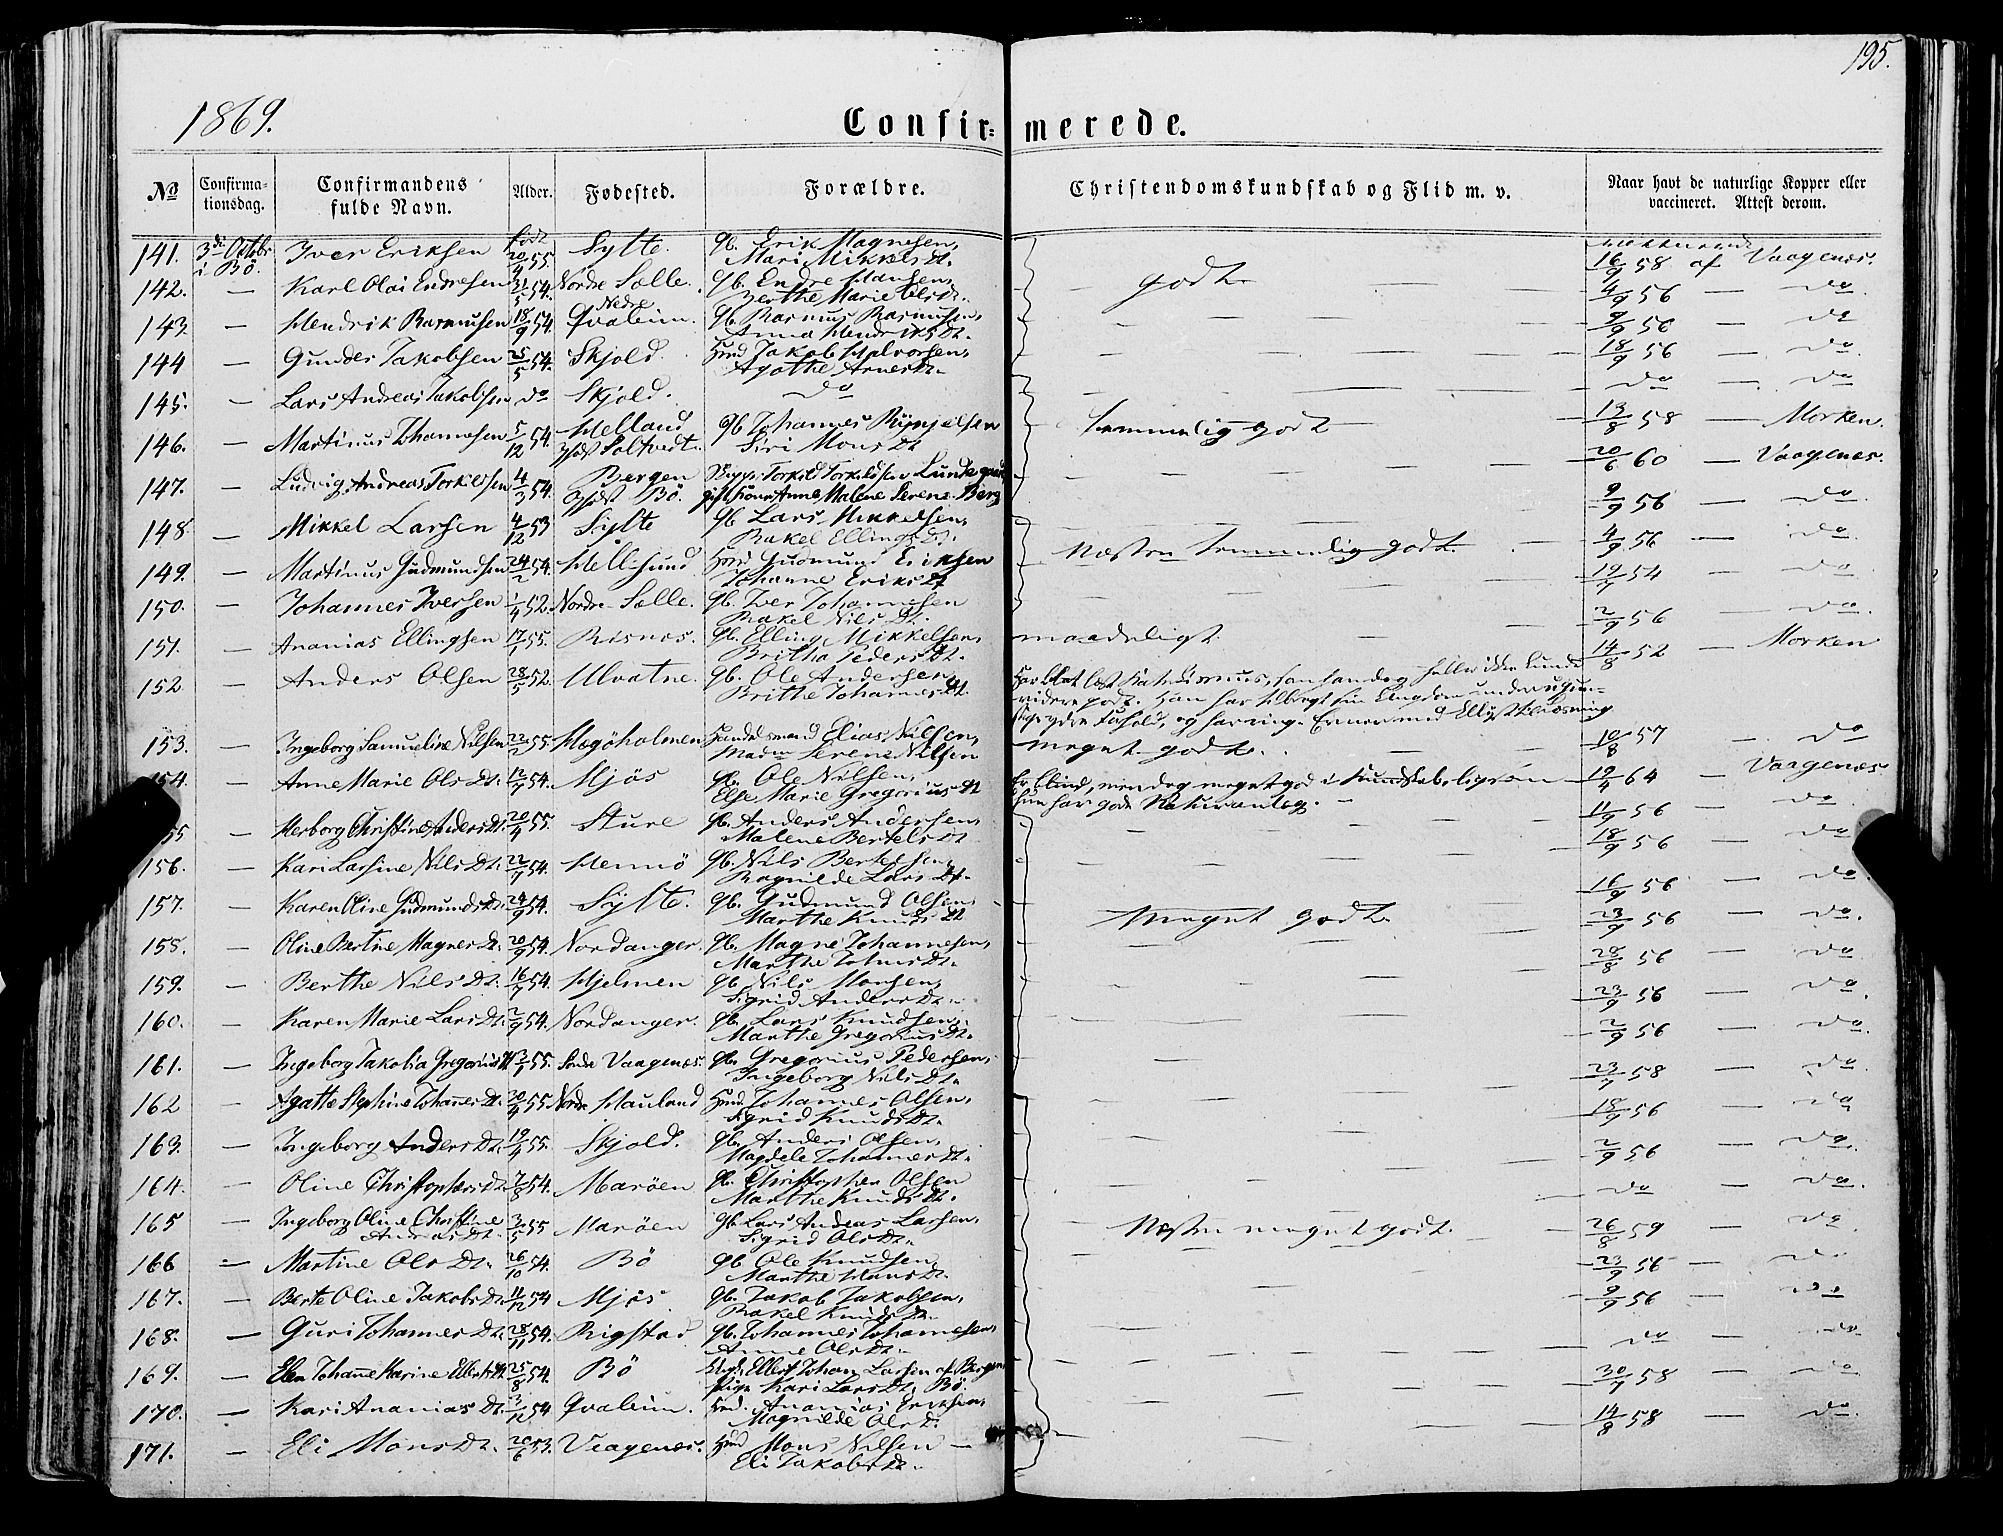 195.
1869.
Confir= merede.
No Confirma-tionsdag. Confirmandens fulde Navn. Alder. Fødested. Forældre. Christendomskundskab og Flid m. v. Naar havt de naturlige Kopper eller vaccineret. Attest derom.
141. 3die Octbr i Bö. Iver Eriksen född 20/4 55. Sylte. Gb. Erik Magnesen, Mari Mikkels Dt. 16/9 58 af Vaagenæs.
142. — Karl Olai Endresen 31/5 54. Nordre Sælle. Gb. Endre Hansen, Berthe Marie Olsdt. godt. 4/9 56 — do
143 — Hendrik Rasmusen 18/9 54. Nedre Qvaleim. Gb. Rasmus Rasmusen, Anna Hendriks Dt. 9/9 56 — do
144 — Gunder Jakobsen 25/5 54. Skjold. Huusmd. Jakob Halvorsen, Agathe Arnesdt. 18/9 56 — do
145. — Lars Andreas Jakobsen do Skjold. do — do — do
146. — Martinus Johannesen 5/12 54. Helland Gb Johannes Siri Mons Dt temmelig godt 13/8 58 — Morken.
147. — Ludvig Andreas Torkilssen 4/3 54. Bergen Bö. Torkild Torkildsen Lundegaard Anne Malene Serene Berg 20/6 60 — Vaagenæs.
148 — Mikkel Larsen 4/12 53 Sylte Gb Lars Mikkelsen, Rakel Ellings Dt. 9/9 56 — do
149. — Martinus Gudmundsen 24/2 54. Hellesund. Gudmund Eriksen Johanne Eriks Dt Næsten temmelig godt. 4/9 56 — do
150. — Johannes Iversen 1/4 52. Nordre Sælle. Gb. Iver Johannesen Rakel Nils Dt. 19/7 54 — do
151. — Ananias Ellingsen 17/1 55. Risnes. Gb. Elling Mikkelsen, Britha Peders Dt. maadeligt. 2/9 56 — do
152 — Anders Olsen 28/5 52. Ulvatne. Gb. Ole Andersen, Brithe Johannes Dt. 14/8 52 — Morken
153. — Ingeborg Samueline Nilsen 22/2 55. Hægöholmen Handelsmand Elias Nilsen, Madm Serene Nilsen meget godt. 10/8 57 — do
154. — Anne Marie Ols Dt. 12/7 54. Mjös Gb. Ole Nilsen, Else Marie Gregorius Dt Er blind, men dog meget god i Kundskab hun har gode Naturanlæg. 19/4 64 — Vaagenæs
55 — Herborg Christine Anders Dt. 20/4 55. Sture Gb. Anders Andersen, Malene Bertels Dt 11/9 56 — do
156. — Kari Larsine Nils Dt. 22/7 54. Hennö Gb. Nils Bertelsen, Ragnilde Lars Dt. 18/9 56 — do
157. — Karen Oline Gudmunds Dt. 24/9 54. Sylte. Gb. Gudmund Olsen, Marthe Knuds Dt Meget godt. 16/9 56 — do
158. — Oline Bertine Magnes Dt. 20/9 54. Nordanger. Gb. Magne Johannesen, Marthe Johns Dt. 23/9 56 — do
159. — Berthe Nils Dt. 16/7 54. Hjelmen Gb Nils Monsen, Sigrid Anders Dt. 28/8 56 — do
160. — Karen Marie Lars Dt. 2/9 54. Nordanger. Gb. Lars Knudsen, Marthe Gregorius Dt. 23/9 56 — do
161. — Ingeborg Jakobia Gregorius Dt 13/1 55. Søndre Vaagenæs. Gb. Gregorius Pedersen, Ingeborg Nils Dt. 2/9 56 — do
162 — Agatte Stephine Johannes Dt. 20/4 55 Nordre Hauland Johannes Olsen, Sigrid Knuds Dt. 23/7 58 — do
163. — Ingeborg Anders Dt. 19/4 55. Skjold. Gb. Anders Olsen, Magdele Johannes Dt. 18/9 56 — do
164. — Oline Christophers Dt. 7/8 54. Maröen Gb. Christopher Olsen Marthe Knuds Dt. 2/9 56 — do
165 — Ingeborg Oline Christine Andreas Dt. 3/5 55 Maröen Gb Lars Andreas Larsen, Sigrid Ols Dt. Næsten meget godt. do — do
166 — Martine Ols Dt. 26/10 54. Bö Gb Ole Knudsen, Marthe Hans Dt. 26/8 59 — do
167. — Berte Oline Jakobs Dt. 11/12 54 Mjös Gb. Jakob Jakobsen, Rakel Knuds Dt. 23/9 56 — do
168. — Guri Johannes Dt. 28/11 54. Rigstad Gb. Johannes Johannesen, Anne Ols Dt. 9/9 56 — do
169. — Elen Johanne Karine Elberts Dt 25/8 54. Bö Elbert Johan Larsen af Bergen, Pige Kari Lars Dt. Bö. do — do
170. — Kari Ananias Dt. 3/12 54 Qvaleim. Ananias Eriksen, Magnilde Ols Dt. 30/7 58 — do
171. — Eli Mons Dt. 20/6 53. Vaagenæs. Mons Nilsen — Eli Jakobs Dt. 14/8 58 — do